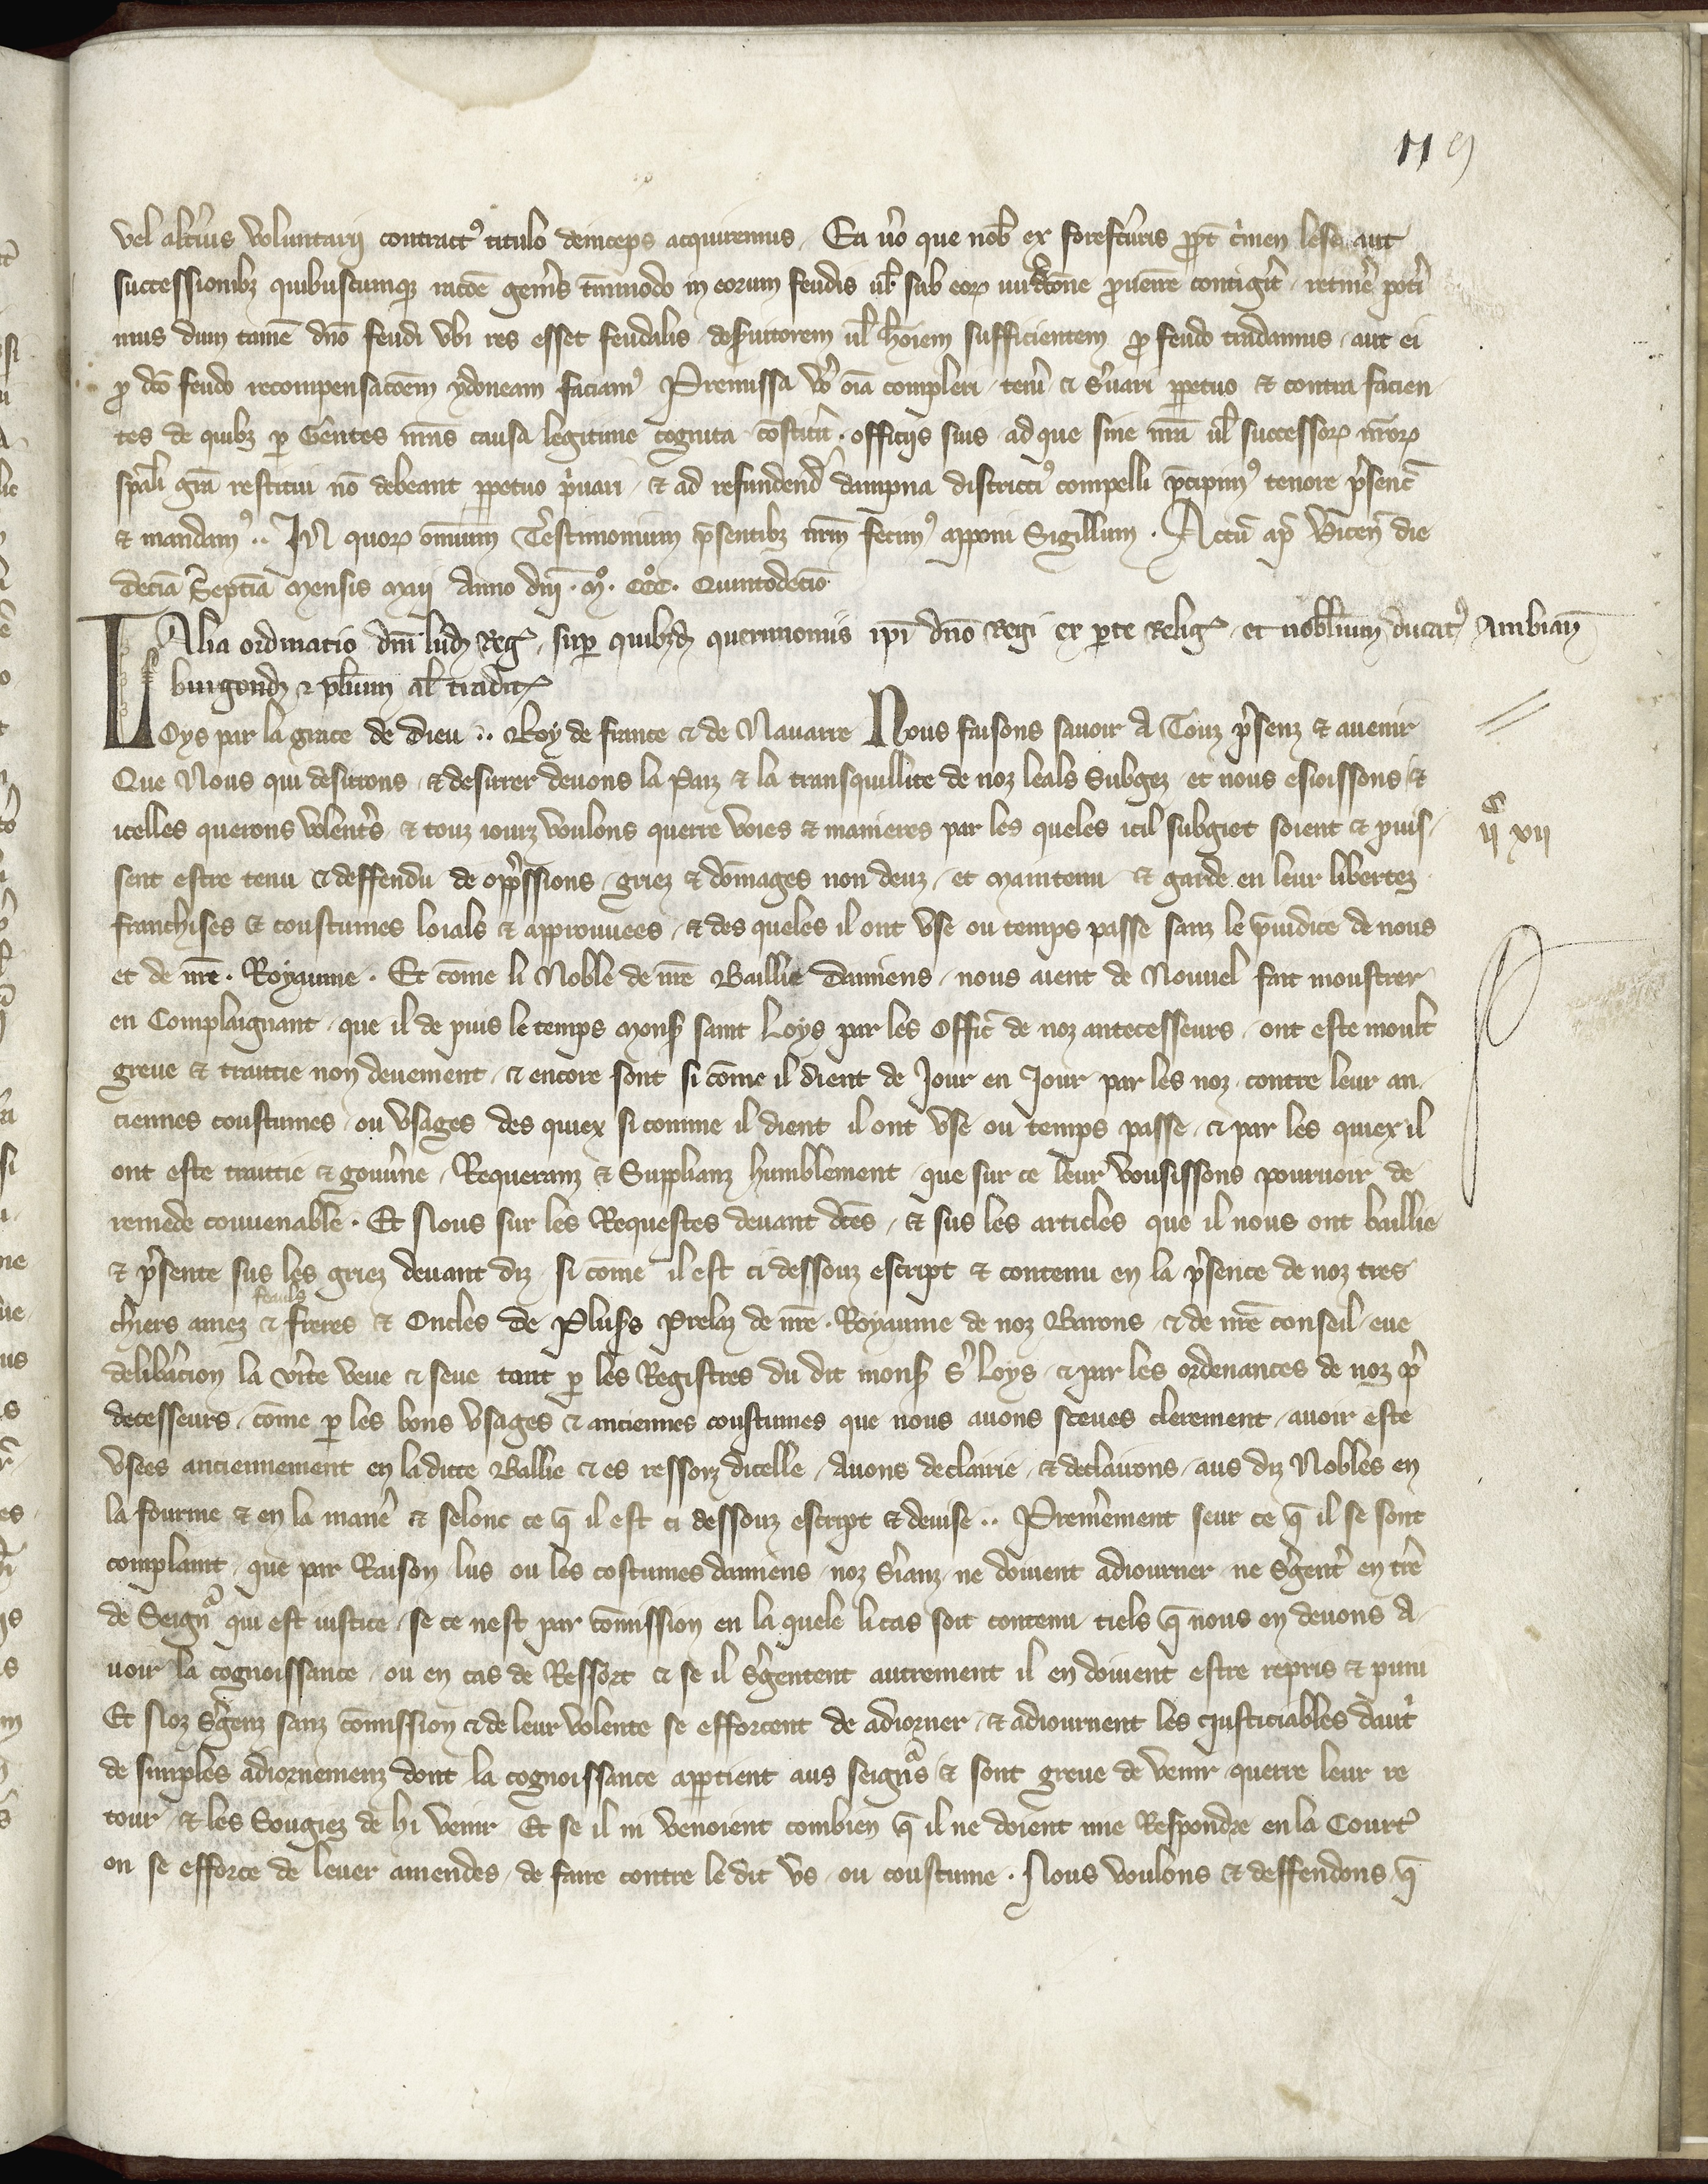 119
vel alteri᷒us voluntarij contract᷒ titulo deinceps acquiremus. Ea ũo que nob̃ ex forefcũris ꝓpt̃ crimen lese aut
successionib; quibuscumq; racõe geñis tm̃modo in eorum feudis ul̃ sub eoꝝ iurđcõne ꝓvenire contigit retinẽ potĩ
mus dum tamẽ dño feudi vbi res esset feudalis deẜuitorem ul̃ hõiem sufficientem ꝓ feudo tradamus aut ei
ꝓ dc̃o feudo recompensacõem ydoneam faciam᷒ Premissa v̾o oĩa compleri teñi & ẜuari ꝑpetuo & contra facien
tes de quib; ꝑ Gentes nr̃as causa legitime cognita cõstiterit officijs suis ad que sine nr̃a ul̃ successoꝝ nr̃oꝝ
spãli gr̃a restitui nõ debeant ꝑpetuo p̾uari & ad refundend̃ dampna districti᷒ compelli p̃cipim᷒ tenore p̾senc̃
& mandam᷒ .. In quoꝝ omnium Testimonium p̃sentib; nr̃m fecim᷒ apponi Sigillum . Actũ ap̃ Vicen̄ die
decĩa Septĩa mensis Maij Anno dñi . Mº. CCCº. Quintodecĩo
Alia ordinatio dñi lud; Reg̃ , sup̱ quib;d̃ querimoniis ip̃i dño Regi ex ꝑte Relig̃ et nobilium ducat᷒ Ambian̄
burgond; & pl̃ium al̃ tradit̃
Loys par la grace de dieu .. Roy de france & de Nauarre Nous faisons sauoir A Touz p̾senz & auenir
Que Nous qui desirrons & desirrer deuons la Paiz & la transquillite de noz leals Subgez et nous esioissons &
icelles querons volent̾s & touz iourz voulons querre voies & manieres par les queles icil subgiet soient & puis
ijᶜ xij
sent estre tenu & deffendu de opp̾ssions griez & dõmages non deuz et maintenu & garde en leur libertez
franchises & coustumes loials & approuuees & des queles il ont vse ou temps passe sanz le p̾iudice de nous
et de nr̃e . Royaume . Et cõme li Noble de nr̃e Baillie damiens nous aient de Nouuel fait monstrer
en Complaignant que il de puis le temps monẜ saint Loys par les Offic̃ de noz antecesseurs ont este moult
greue & traittie non deuement & encore sont si cõme il dient de Jour en Jour par les noz contre leur an
ciennes coustumes ou vsages des quiex si comme il dient il ont vse ou temps passe & par les quiex il
ont este traittie & gouũne Requeranz & Supplianz humblement que sur ce leur vousissons pouruoir de
remede conuenable . Et Nous sur les Requestes deuant dc̃es & sus les articles que il nous ont baillie
& p̾sente sus les griez deuant diz si cõme il est ci dessouz escript & contenu en la p̾sence de noz tres
feauls
chiers amez & freres & Oncles de Pluẜs Prelaz de nr̃e . Royaume de noz Barons & de nr̃e conseil eue
deliberacion la ṽite veue & seue tant ꝑ les Registres du dit monẜ S̾ Loys & par les ordenances de noz p̾
decesseurs cõme ꝑ les bons vsages & anciennes coustumes que nous auons sceues clerement auoir este
vsees anciennement en ladite Ballie & es ressorz dicelle Auons declairie & declairons aus diz Nobles en
la fourme & en la maner̾ & selonc ce q̃ il est ci dessouz escript & deuise .. Prem̾ement seur ce q̃ il se sont
complaint que par Raison lus ou les costumes damiens noz S̾ianz ne doiuent adiourner ne S̾gent̾ en tr̃e
de Seignᵃ qui est iustice se ce nest par cõmission en la quele li cas soit contenu tiels q̃ nous en deuons A
uoir la cognoissance ou en cas de Ressort & se il S̾gentent autrement il en doiuent estre repris & puni
Et Noz S̾genz sanz cõmission & de leur volente se efforcent de adiorner & adiournent les Justiciables daut̾
de simples adiornemenz dont la cognoissance apptient aus seignᵃs & sont greue de venir querre leur re
tour & les Sougiez de hi venir Et se il ni venoient combien q̃ il ne doient mie Respondre en la Court
on se efforce de leuer amendes de faire contre le dit vs ou coustume . Nous voulons & deffendons q̃